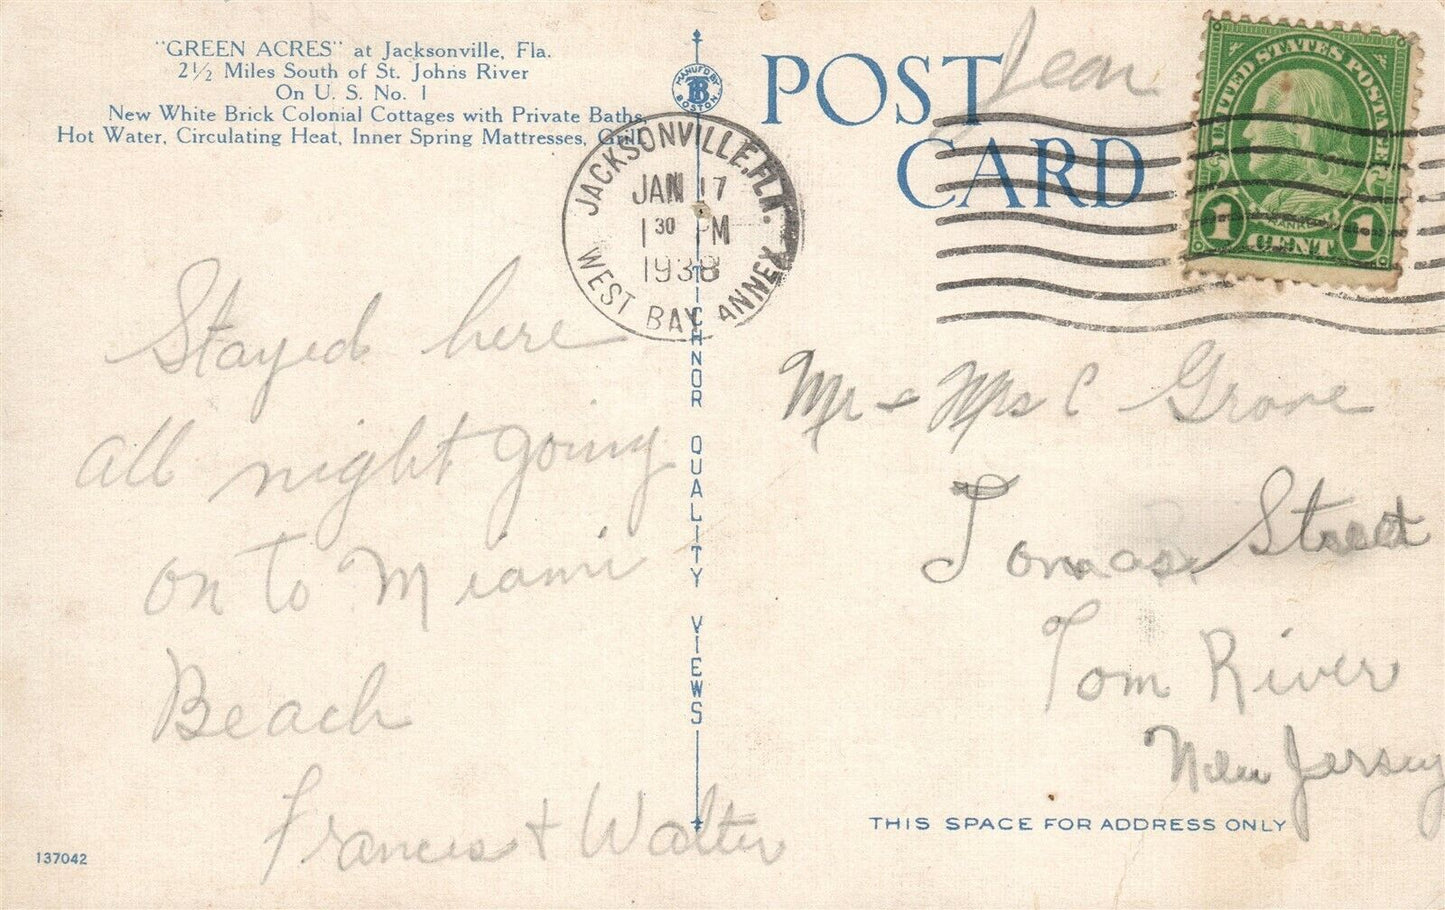 "GREEN ACRES" at Jacksonville, Fla.
2½ Miles South of St. Johns River
On U. S. No. 1
New White Brick Colonial Cottages with Private Baths,
Hot Water, Circulating Heat, Inner Spring Mattresses, Grill
MANUF'D BY
TB
BOSTON.
POST
CARD
Jean
UNITED STATES POSTAGE
1 CENT 1
JACKSONVILLE, FLA.
JAN 17
1 30 PM
1938
WEST BAY ANNEX
TICHNOR QUALITY VIEWS
Stayed here
all night going
on to Miami
Beach
Frances + Walter
Mr + Mrs C Grove
Tomas Street
Tom River
New Jersey
THIS SPACE FOR ADDRESS ONLY
137042